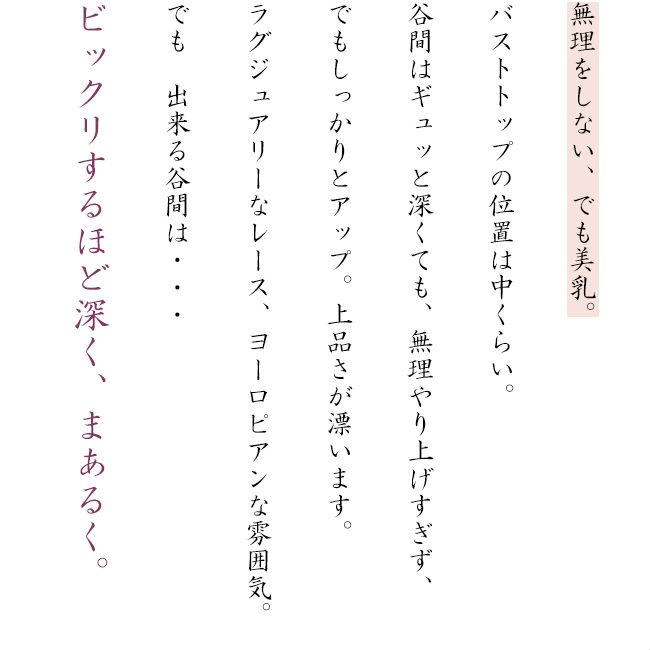 無理をしない、でも美乳。
バストトップの位置は中くらい。
谷間はギュッと深くても、無理やり上げすぎず、
でもしっかりとアップ。上品さが漂います。
ラグジュアリーなレース、ヨーロピアンな雰囲気。
でも　出来る谷間は・・・
ビックリするほど深く、まあるく。